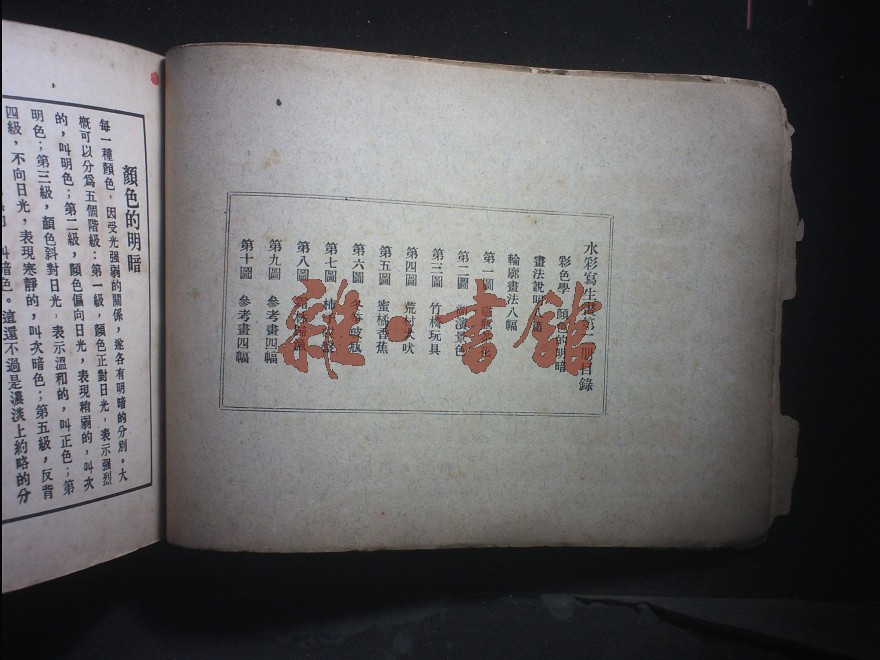 水彩寫生畫第一册目錄
彩色學 顏色的明暗
畫法說明八
輪廓畫法八幅
第一圖
第二圖 湖濱景色
第三圖 竹檎玩具
第四圖 荒村犬吠
第五圖 蜜橘香蕉
第六圖 冬笋 瓶
第七圖 柿子
第八圖
第九圖 參考畫四幅
第十圖 參考畫四幅
雜·書館
顏色的明暗
每一種顏色，因受光强弱的關係，遂各有明暗的分別。大
概可以分爲五個階級：第一級，顏色正對日光，表示强烈
的，叫明色；第二級，顏色偏向日光，表現稍弱的，叫次
明色；第三級，顏色斜對日光，表示溫和的，叫正色；第
四級，不向日光，表現寒靜的，叫次暗色；第五級，反背
叫暗色。這還不過是濃淡上約略的分